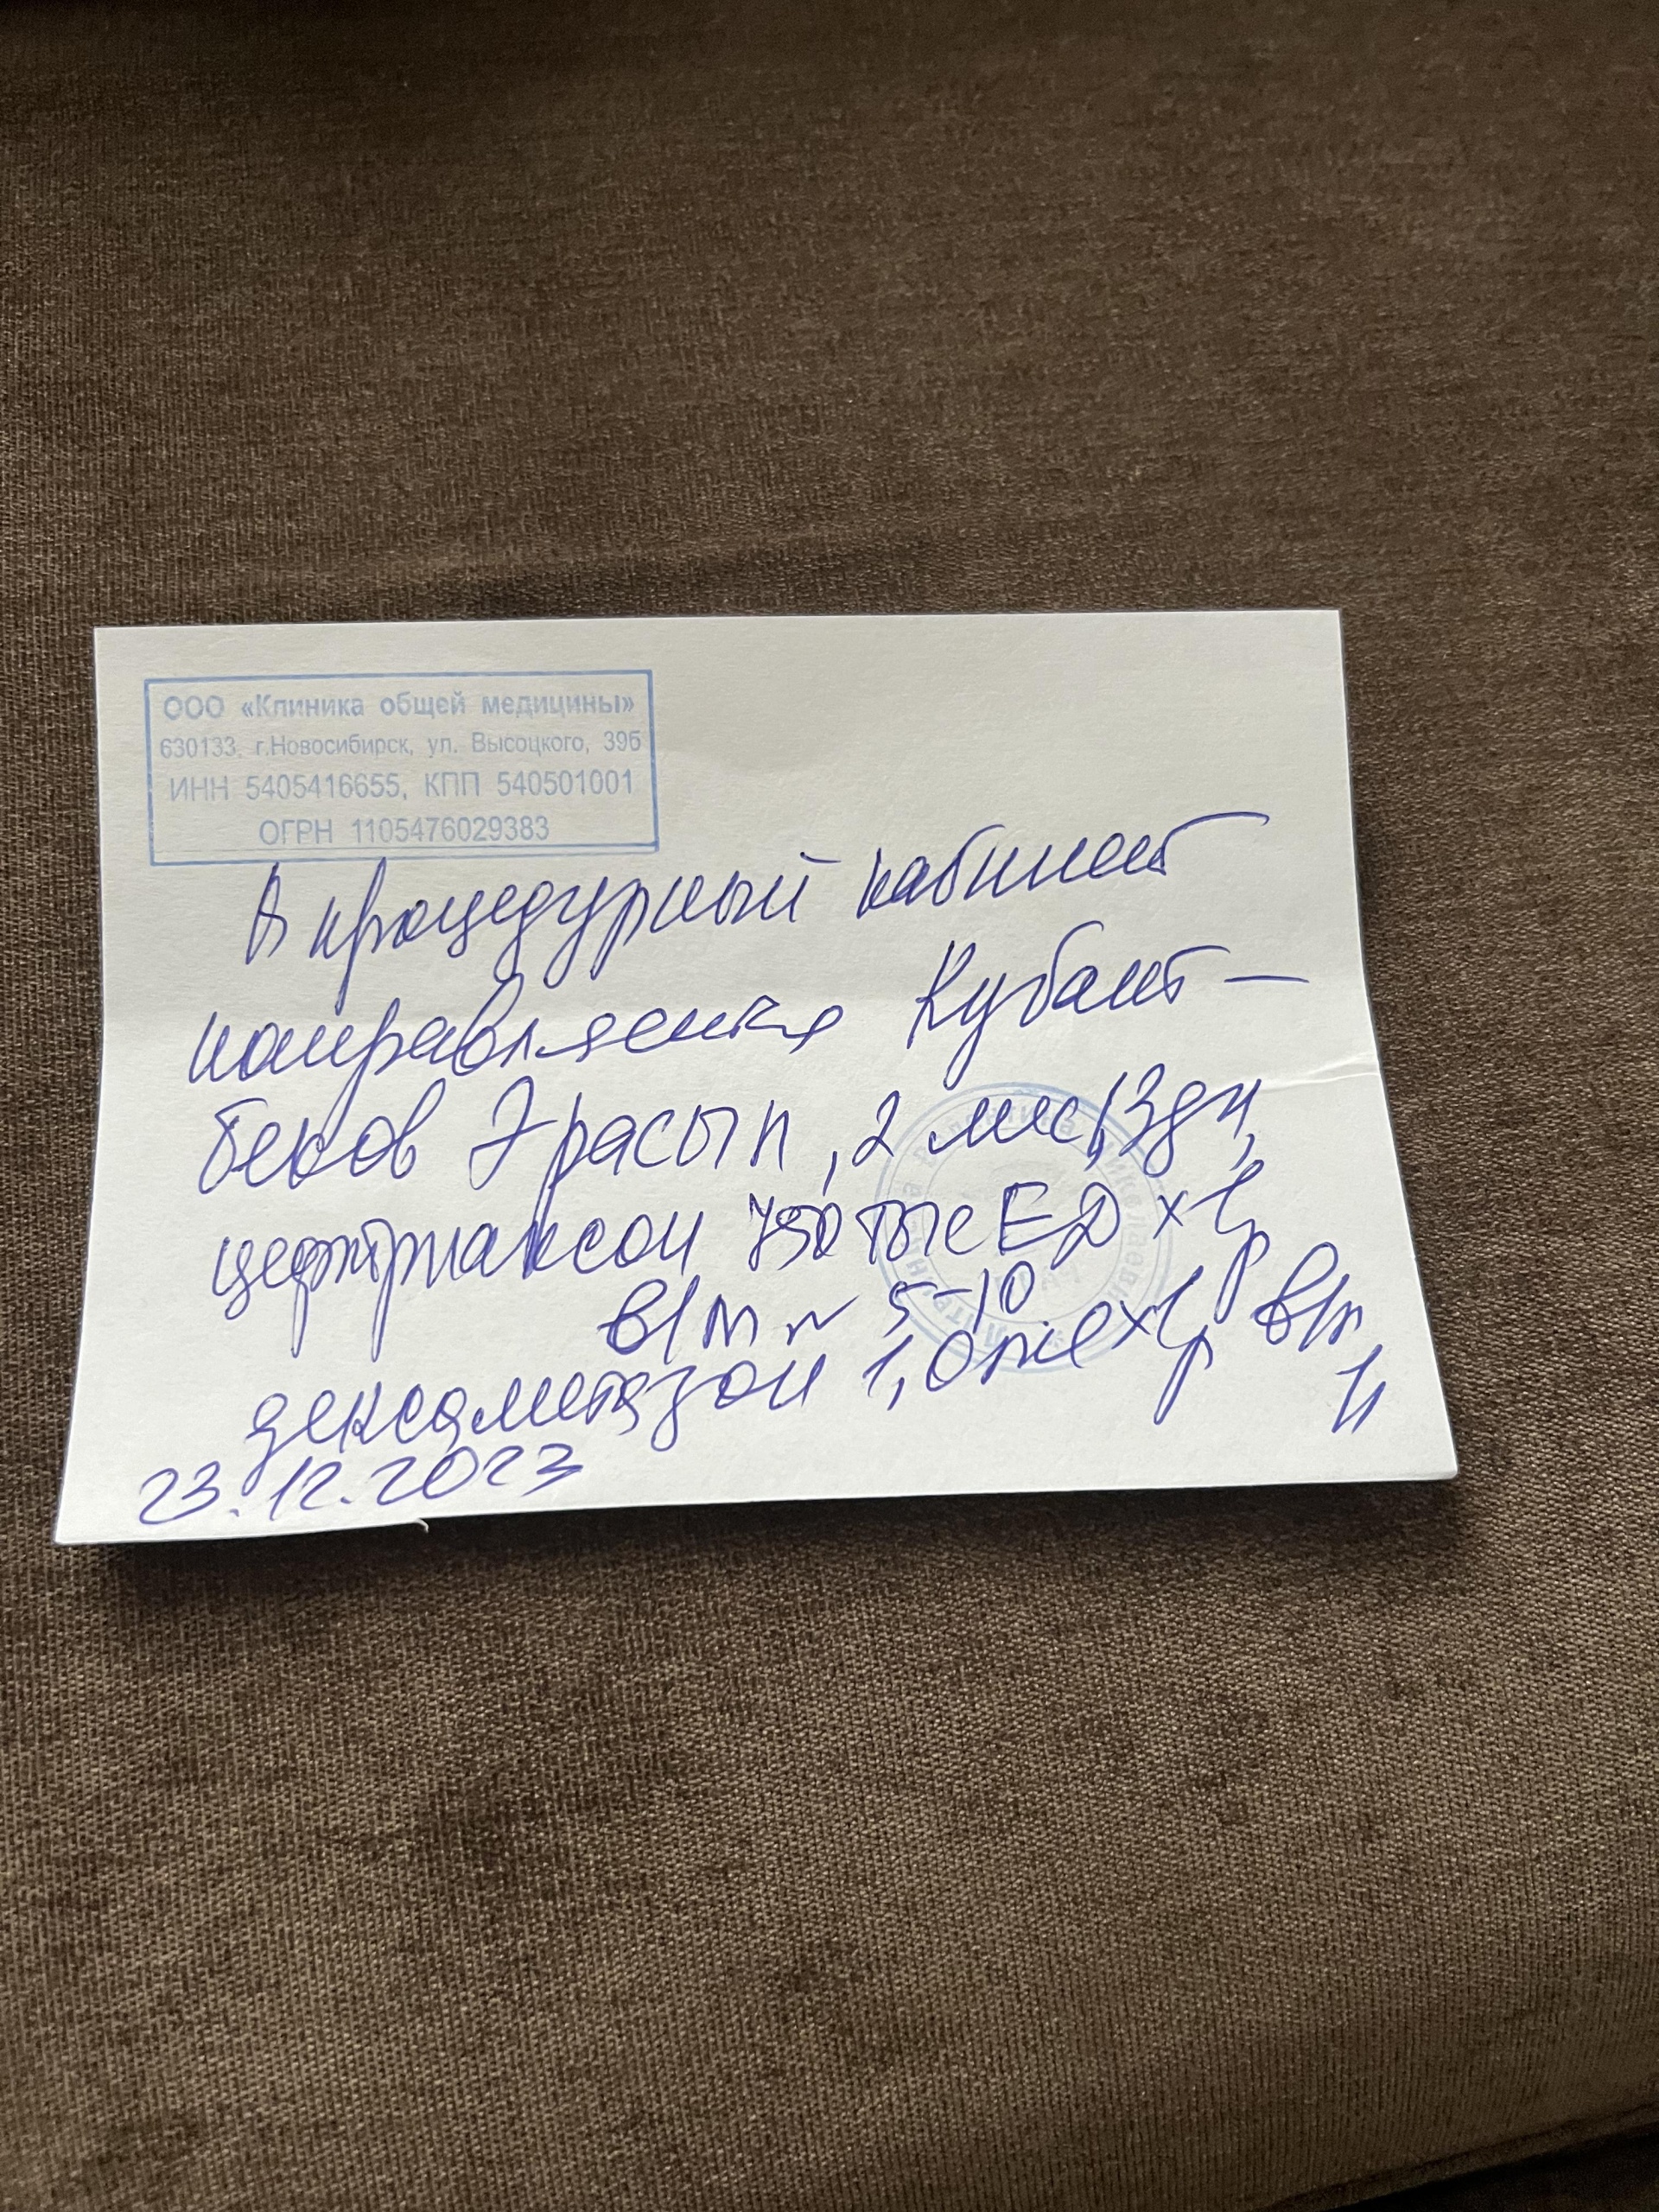 ООО «Клиника общей медицины»
630133, г.Новосибирск, ул. Высоцкого, 39б
ИНН 5405416655, КПП 540501001
ОГРН 1105476029383
В процедурный кабинет
направляется Кубант-
беков Эрасыл, 2 мес,
цефтриаксон 750 тыс ЕД х 1р
в/м N 5-10
дексаметазон 1,0 х 1р в/м
23.12.2023